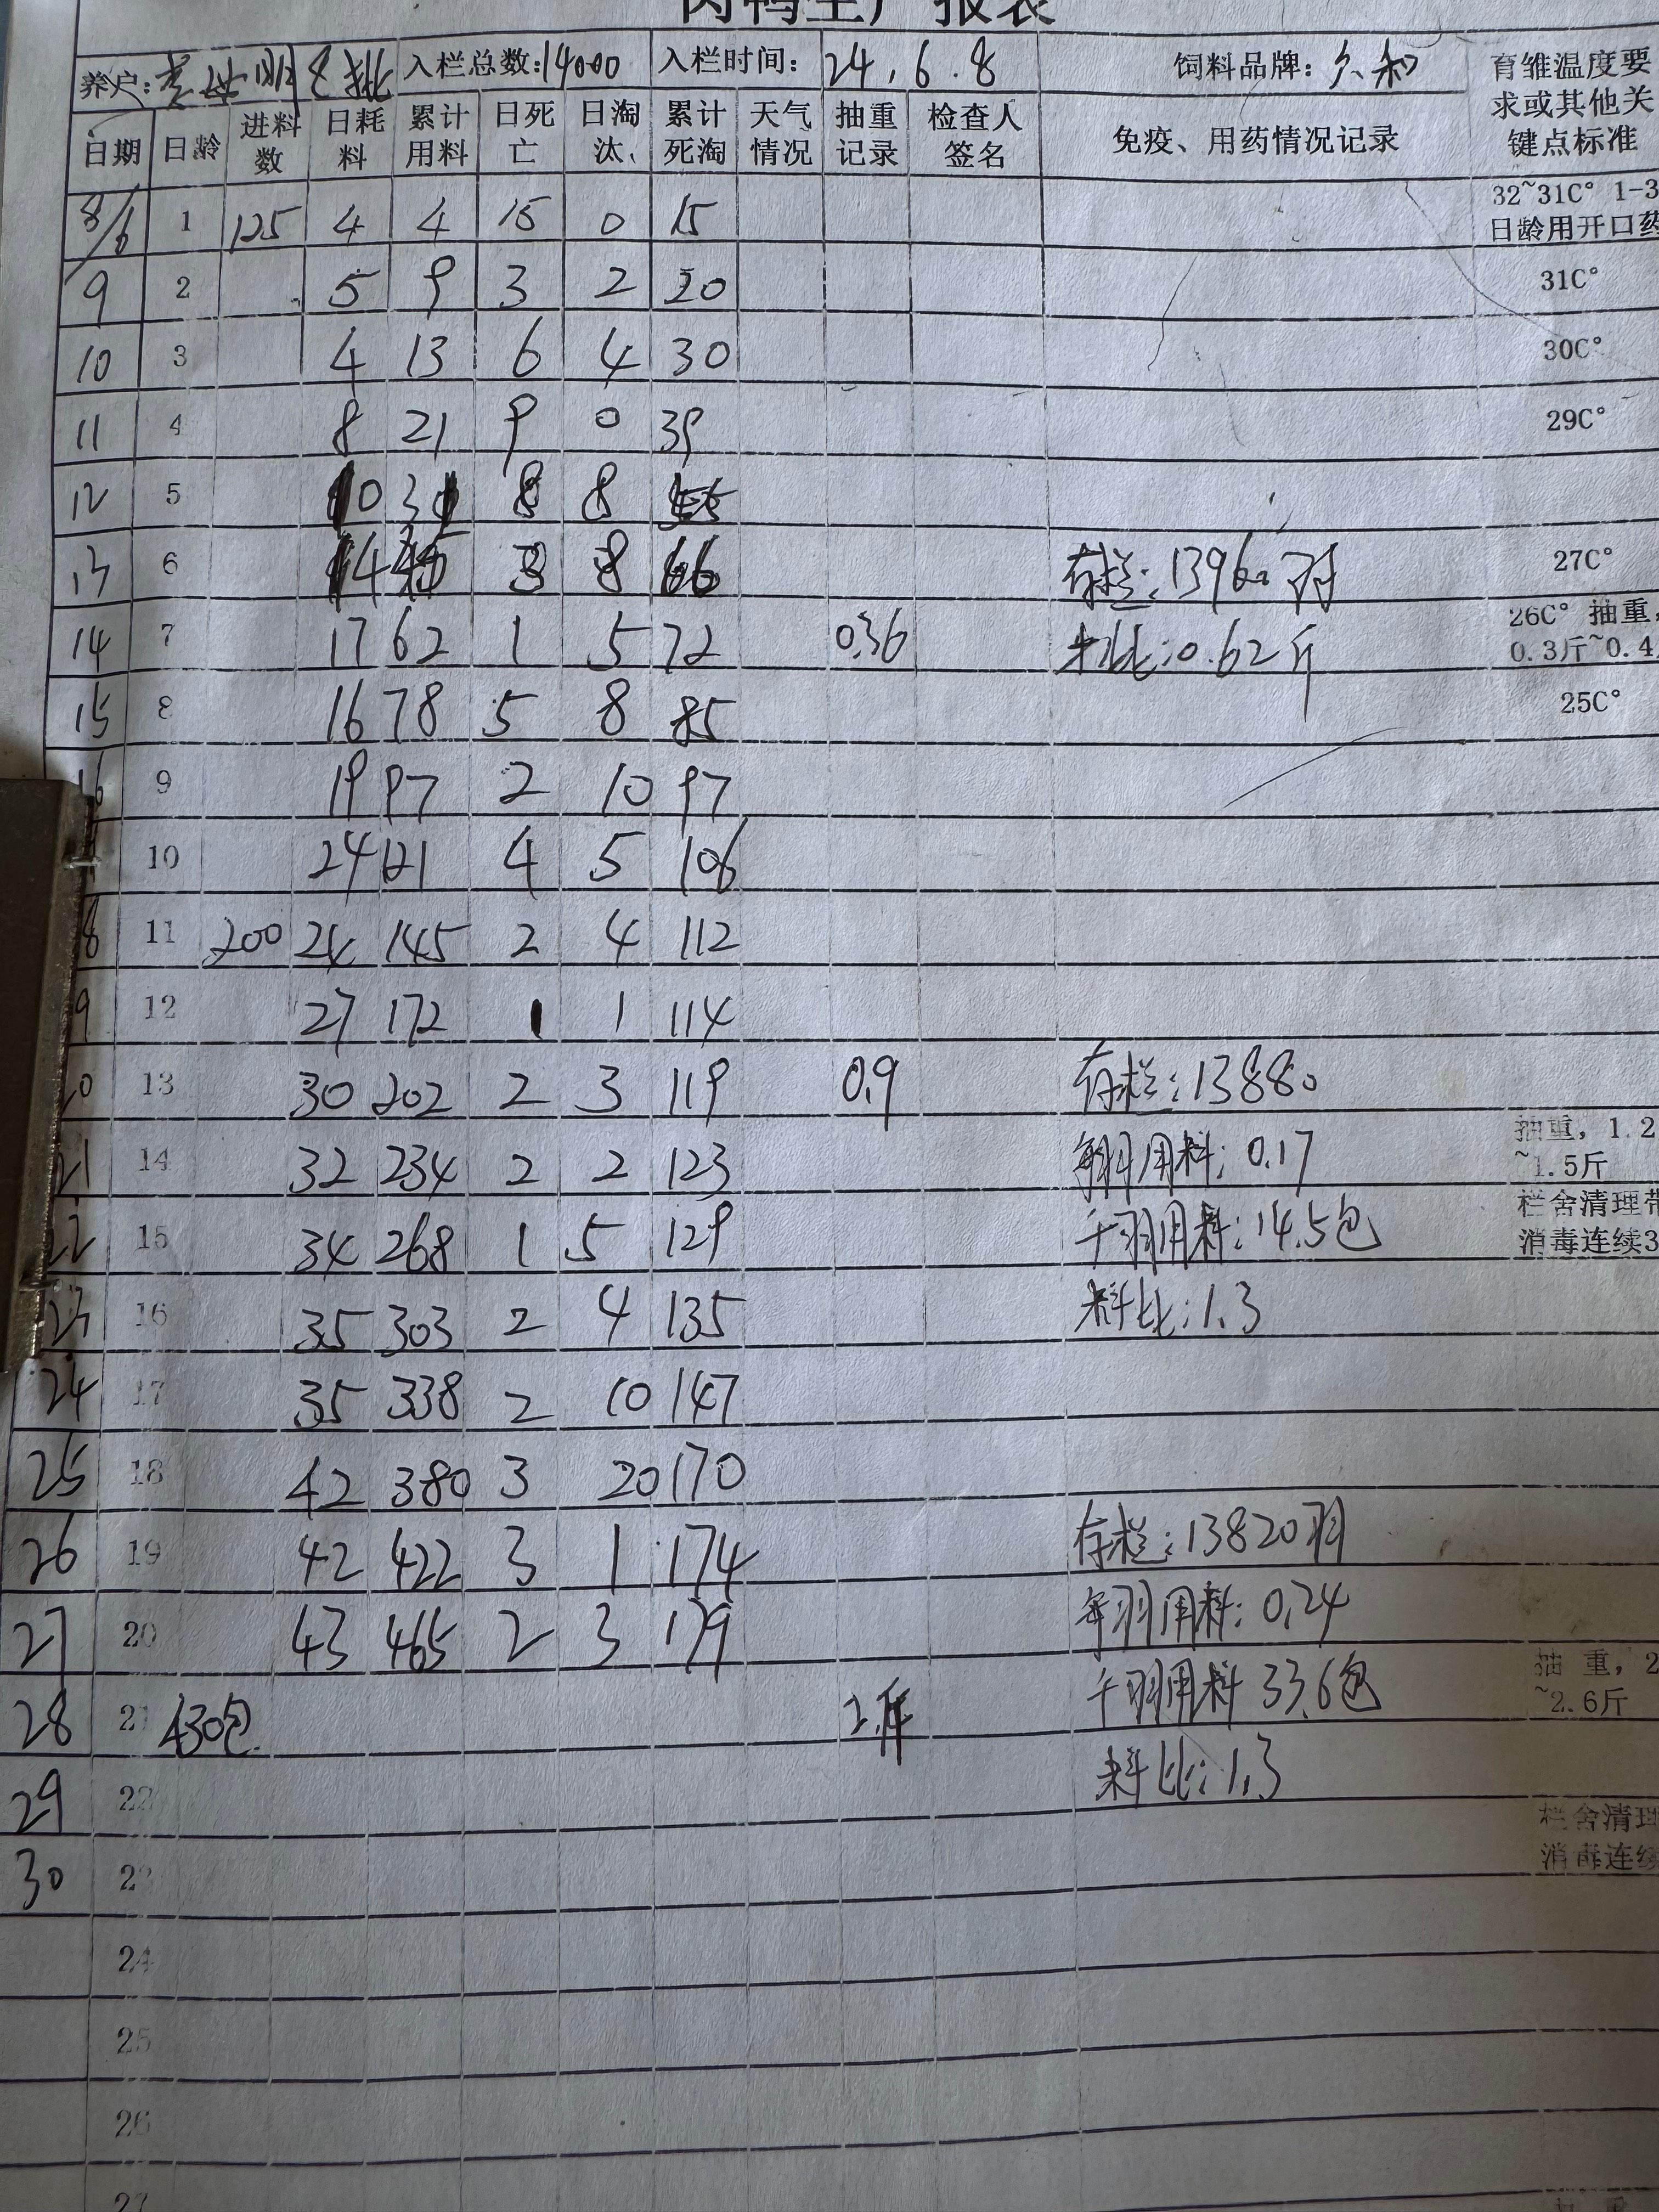 肉鸭生产报表
养户: 8批 入栏总数:14000 入栏时间: 24.6.8 饲料品牌: 久和 育雏温度要
求或其他关
键点标准
日期 日龄 进料数 日耗料 累计用料 日死亡 日淘汰、 累计死淘 天气情况 抽重记录 检查人签名 免疫、用药情况记录
8/6 1 125 4 4 15 0 15 32~31C° 1-3
日龄用开口药
9 2 5 9 3 2 20 31C°
10 3 4 13 6 4 30 30C°
11 4 8 21 9 0 39 29C°
12 5 10 31 8 8 55
13 6 14 45 3 8 66 存栏:13960羽 27C°
14 7 17 62 1 5 72 0.36 料比:0.62斤 26C° 抽重,
0.3斤~0.4
15 8 16 78 5 8 85 25C°
16 9 19 97 2 10 97
10 24 121 4 5 106
8 11 200 24 145 2 4 112
9 12 27 172 1 1 114
20 13 30 202 2 3 119 0.9 存栏:13880
21 14 32 234 2 2 123 每羽用料:0.17 抽重,1.2
~1.5斤
22 15 34 268 1 5 129 千羽用料:14.5包 栏舍清理带
消毒连续3
23 16 35 303 2 4 135 料比:1.3
24 17 35 338 2 10 147
25 18 42 380 3 20 170
26 19 42 422 3 1 174 存栏:13820羽
27 20 43 465 2 3 179 每羽用料:0.24
28 21 430包 千羽用料 33.6包 抽重,2
~2.6斤
29 22 料比:1.3
栏舍清理
消毒连续
30 23
24
25
26
27